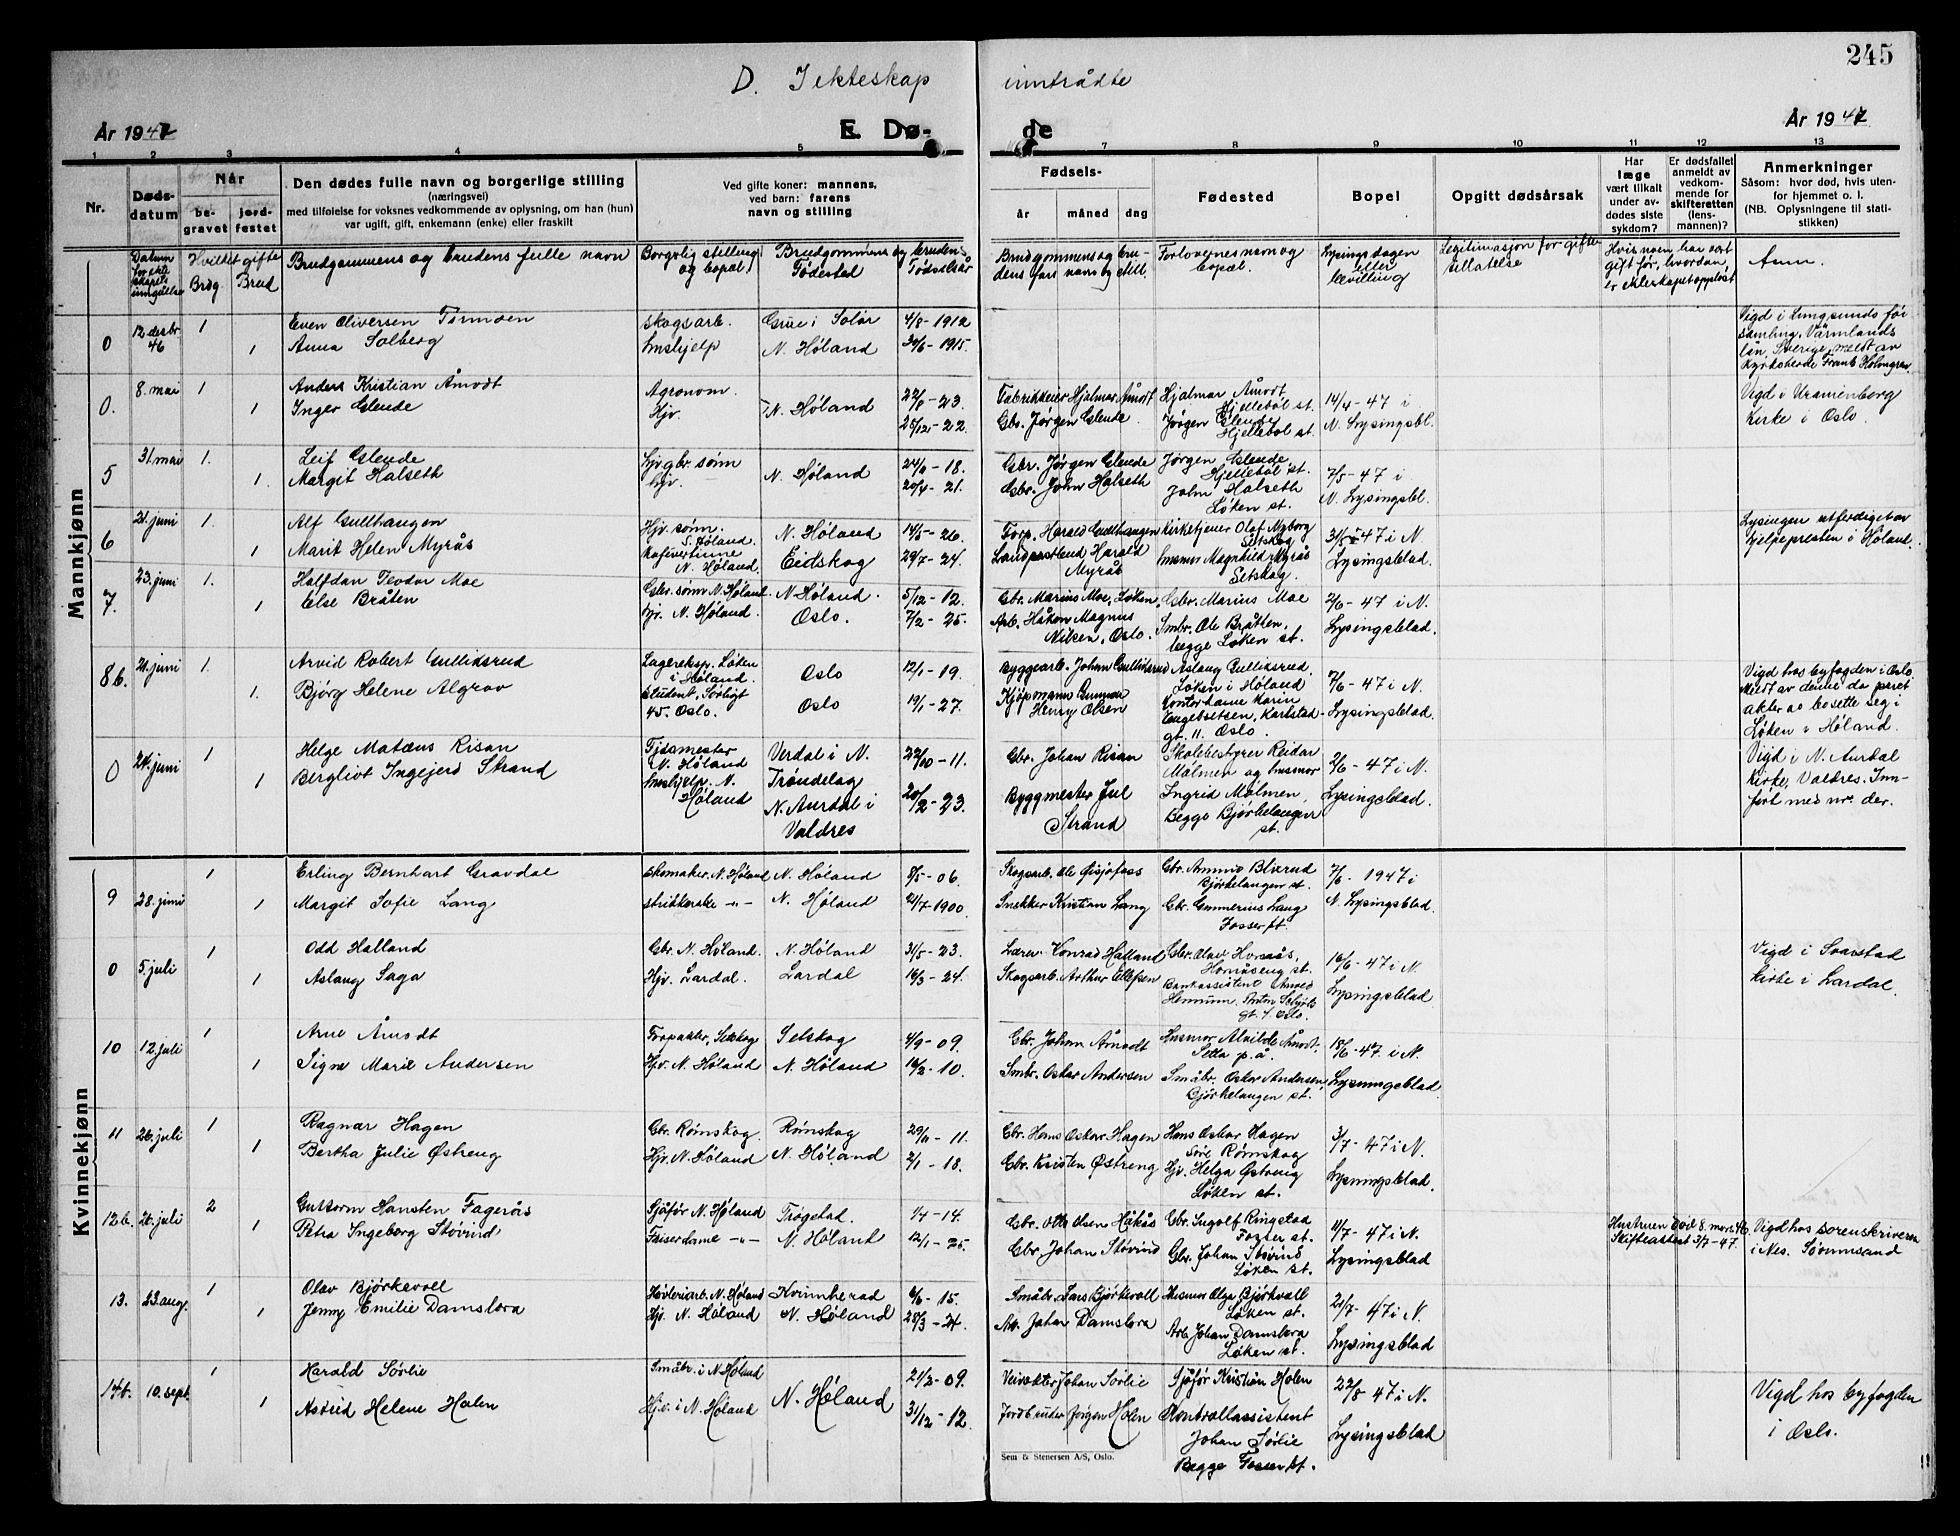 245
D. I ekteskap inntrådte
År 1947
E. Dø-
de
År 1947
1 2 3 4 5 7 8 9 10 11 12 13
Nr.
Døds-
datum
Når
be-
gravet
jord-
festet
Den dødes fulle navn og borgerlige stilling
(næringsvei)
med tilføielse for voksnes vedkommende av oplysning, om han (hun)
var ugift, gift, enkemann (enke) eller fraskilt
Ved gifte koner: mannens,
ved barn: farens
navn og stilling
Fødsels-
år måned dag
Fødested
Bopel
Opgitt dødsårsak
Har
læge
vært tilkalt
under av-
dødes siste
sykdom?
Er dødsfallet
anmeldt av
vedkom-
mende for
skifteretten
(lens-
mannen)?
Anmerkninger
Såsom: hvor død, hvis uten-
for hjemmet o. l.
(NB. Oplysningene til stati-
stikken)
Datum
for ekte
skapets
inngåelse
Hvilket gifte
Brdg. Brud
Brudgommens og brudens fulle navn
Borgerlig stilling
og bopel
Brudgommens og brudens
Fødested Fødselsår
Brudgommens og bru-
dens fars navn og still.
Forlovernes navn og
bopel.
Lysingsdagen
eller
bevilling
Legitimasjon for gifte
tillatelse
Hvis noen har vært
gift før, hvordan
er ekteskapet oppløst
Anm.
Mannkjønn
0 12 desbr 46 1 Even Oliversen Tørmoen skogsarb. Grue i Solør 4/8-1912
1 Anna Solberg hushjelp N. Høland 30/6-1915.
Vigd i Kungsunds för
samling, Värmlands
län, Sverige, meldt av
kyrkoherde Frank Holmgren
0. 8. mai 1 Anders Kristian Åmodt Agronom. N. Høland 22/8-23.
1 Inger Glende Hjv. 25/12-22.
Fabrikkeier Hjalmar Åmodt
Gbr. Jørgen Glende.
Hjalmar Åmodt
Hjellebøl st.
Jørgen Glende
Hjellebøl st.
14/4-47 i
N. Lysingsbl.
Vigd i Uranienborg
kirke i Oslo.
5 31. mai 1. Leif Glende Hjv. gbr. sønn N. Høland 24/6-18.
1. Margit Halseth Hjv. 20/4-21.
Gbr. Jørgen Glende
Gbr. John Halseth
Jørgen Glende
Hjellebøl st.
John Halseth
Løken st.
7/5-47 i
N. Lysingsbl.
6 21. juni 1. Alf Gullhaugen Hjv. sønn. S. Høland. N. Høland 14/5-26.
1 Marit Helen Myrås kafévertinne N. Høland. Eidskog 29/7-24.
Forp. Harald Gullhaugen
Landpostbud Harald
Myrås
Kirketjener Olaf Nyborg
Setskog
Husmor Magnhild Myrås
Setskog.
31/5-47 i N
Lysingsblad.
Lysingen utferdiget av
hjelpepresten i Høland.
7. 23. juni 1. Halfdan Teodor Moe Gbr. sønn N. Høland. N. Høland. 5/12-12.
1 Else Bråten hjv. N. Høland. Oslo. 7/2-25.
Gbr. Marius Moe, Løken,
Arb. Håkon Magnus
Nilsen, Oslo.
Gbr. Marius Moe
Smbr. Ole Bråten,
begge Løken st.
2/6-47 i N.
Lysingsblad.
8b. 21. juni 1. Arvid Robert Gulliksrud Lagereksp. Løken i Høland. Oslo 12/1-19.
1. Bjørg Helene Algrøv Student, Sørligt 45. Oslo. Oslo 19/1-27.
Byggearb. Johan Gulliksrud
Kjøpmann Gunnar
Henry Olsen
Aslaug Gulliksrud,
Løken i Høland
Kontordame Karin
Engebretsen, Karlstad-
gt. 11. Oslo.
7/6-47 i N.
Lysingsblad.
Vigd hos byfogden i Oslo
Meldt av denne da paret
akter å bosette seg i
Løken i Høland.
0 24. juni 1 Helge Mateus Risan Fjøsmester N. Høland Verdal i N. Trøndelag 22/10-11.
1 Bergliot Ingejerd Strand hushjelp. N. Høland N. Aurdal i Valdres 20/2-23.
Gbr. Johan Risan
Byggmester Jul
Strand
Skolebestyrer Reidar
Malmen og husmor
Ingrid Malmen,
Begge Bjørkelangen
st.
2/6-47 i N.
Lysingsblad.
Vigd i N. Aurdal
kirke, Valdres. Inn-
ført med nr. der.
Kvinnekjønn
9 28. juni 1 Erling Bernhart Gravdal skomaker. N. Høland N. Høland 8/5-06.
1 Margit Sofie Lang strikkerske -"- N. Høland 12/7-1900.
Skogsarb. Ole Gisjøfoss
Snekker Kristian Lang
Gbr. Ammund Blixrud
Bjørkelangen st.
Gbr. Gunnerius Lang
Fosser st.
7/6-1947 i
N. Lysingsblad.
0 5. juli 1 Odd Halland Gbr. N. Høland. N. Høland 31/5-23.
1 Aslaug Saga Hjv. Lardal. Lardal 16/3-24.
Lærer Konrad Halland
Skogsarb. Arthur Ellefsen
Gbr. Olav Hornås,
Hornåseng st.
Bankassistent Arvid
Hennum, Anton Schjøths
gt. 4. Oslo.
16/6-47 i N.
Lysingsblad
Vigd i Svarstad
kirke i Lardal.
10 12. juli 1 Arne Åmodt Forpakter, Setskog Setskog 4/9-09.
1 Signe Marie Andersen Hjv. N. Høland N. Høland 16/2-10.
Gbr. Johan Åmodt
Smbr. Oskar Andersen
Husmor Alvilde Åmodt
Setta p.å.
Småbr. Oskar Andersen,
Bjørkelangen st.
18/6-47 i N.
Lysningsblad.
11 26. juli 1 Ragnar Hagen Gbr. Rømskog. Rømskog 29/11-11.
1 Bertha Julie Østreng Hjv. N. Høland N. Høland 2/1-18.
Gbr. Hans Oskar Hagen
Gbr. Kristen Østreng
Hans Oskar Hagen
Søre Rømskog
Hjv. Helga Østreng
Løken st.
3/7-47 i N.
Lysningsblad.
12b. 26. juli 2 Guttorm Hansten Fagerås Sjåfør N. Høland Trøgstad. 1/4-14.
1 Petra Ingeborg Støvind Friserdame -"- N. Høland 12/1-25.
Gbr. Otto Olsen Håkås
Gbr. Johan Støvind
Gbr. Ingolf Ringstad
Fosser st.
Gbr. Johan Støvind
Løken st.
11/7-47 i N.
Lysingsblad
Hustruen død 8. mars 46.
Skifteattest 3/7-47.
Vigd hos sorenskriveren
i Nes. Sørumsand
13. 23. aug. 1 Olav Bjørkevoll Høvleriarb. N. Høland Kvinnherad 6/6-15.
1 Jenny Emilie Damslora Hjv. N. Høland N. Høland 28/3-24.
Småbr. Lars Bjørkevoll
Arb. Johan Damslora
Husmor Olga Bjørkvoll
Løken st.
Arb. Johan Damslora
Løken st.
21/7-47 i N.
Lysingsblad
14b. 10. sept. 1 Harald Sørlie Småbr. i N. Høland N. Høland 21/2-09.
1 Astrid Helene Holen Hjv. i N. Høland 31/12-12.
Veivokter Johan Sørlie
Jordbruker Jørgen Holen
Sjåfør Kristian Holen
Kontrollassistent
Johan Sørlie
Begge Fosser st.
22/8-47 i N.
Lysingsblad
Vigd hos byfogden
i Oslo.
Sem & Stenersen A/S, Oslo.